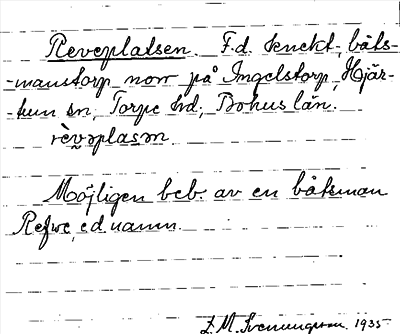 Reveplatsen. F.d. knekt-, båts-
-manstorp norr på Ingelstorp, Hjär-
-tum sn, Torpe hd, Bohus län.
rèvəplasən
Möjligen beb. av en båtsman
Refwe, ed namn.
E. M. Svenungsson 1935